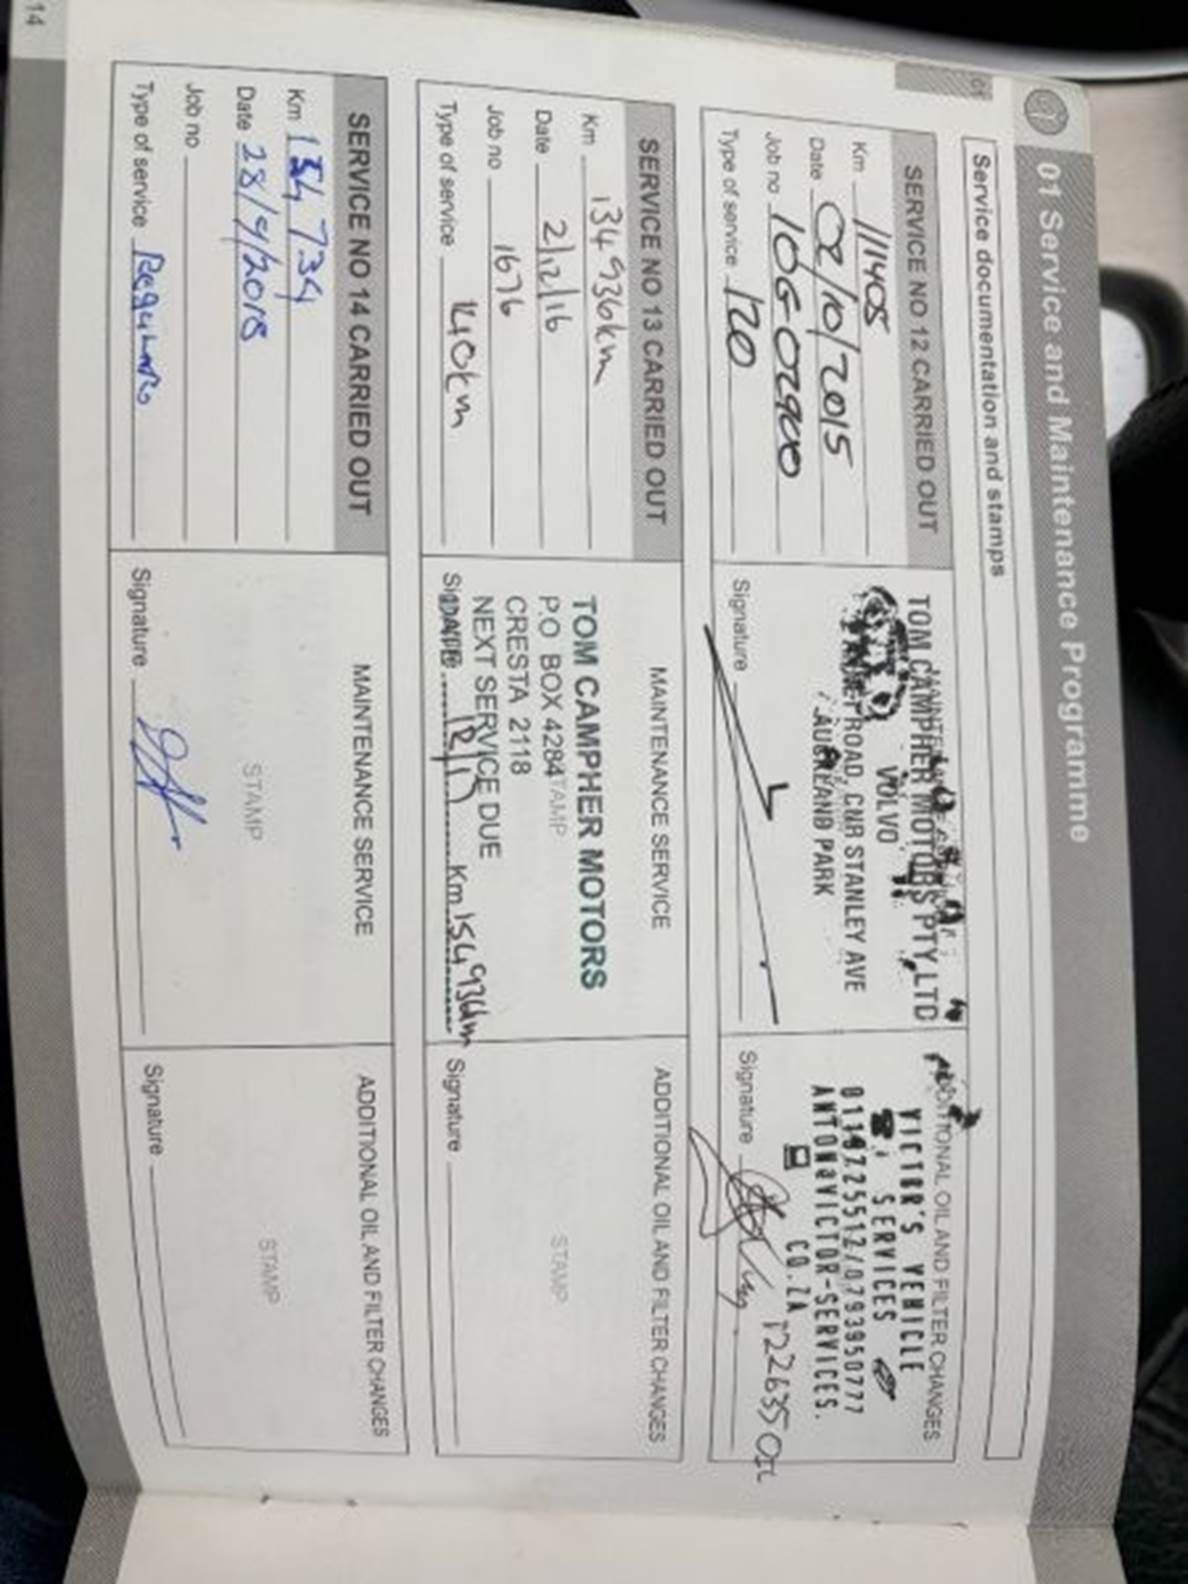 01 Service and Maintenance Programme
01
Service documentation and stamps
SERVICE NO 12 CARRIED OUT
Km 111405
Date 02/10/2015
Job no 106-02900
Type of service 120
TOM CAMPHER MOTORS PTY,LTD
VOLVO
ROAD, CNR STANLEY AVE
AUCKLAND PARK
Signature
ADDITIONAL OIL AND FILTER CHANGES
VICTOR'S VEHICLE
SERVICES
0119725512/0793950777
ANTON@VICTOR-SERVICES.
CO.ZA
Signature 122635 OIL
SERVICE NO 13 CARRIED OUT
Km 134 936km
Date 2/12/16
Job no 1676
Type of service 140km
MAINTENANCE SERVICE
TOM CAMPHER MOTORS
P.O BOX 4284
STAMP
CRESTA 2118
NEXT SERVICE DUE
Signature
DATE 12/17 Km 154 936km
ADDITIONAL OIL AND FILTER CHANGES
STAMP
Signature
SERVICE NO 14 CARRIED OUT
Km 154 734
Date 28/9/2018
Job no
Type of service
MAINTENANCE SERVICE
STAMP
Signature
ADDITIONAL OIL AND FILTER CHANGES
STAMP
Signature
14